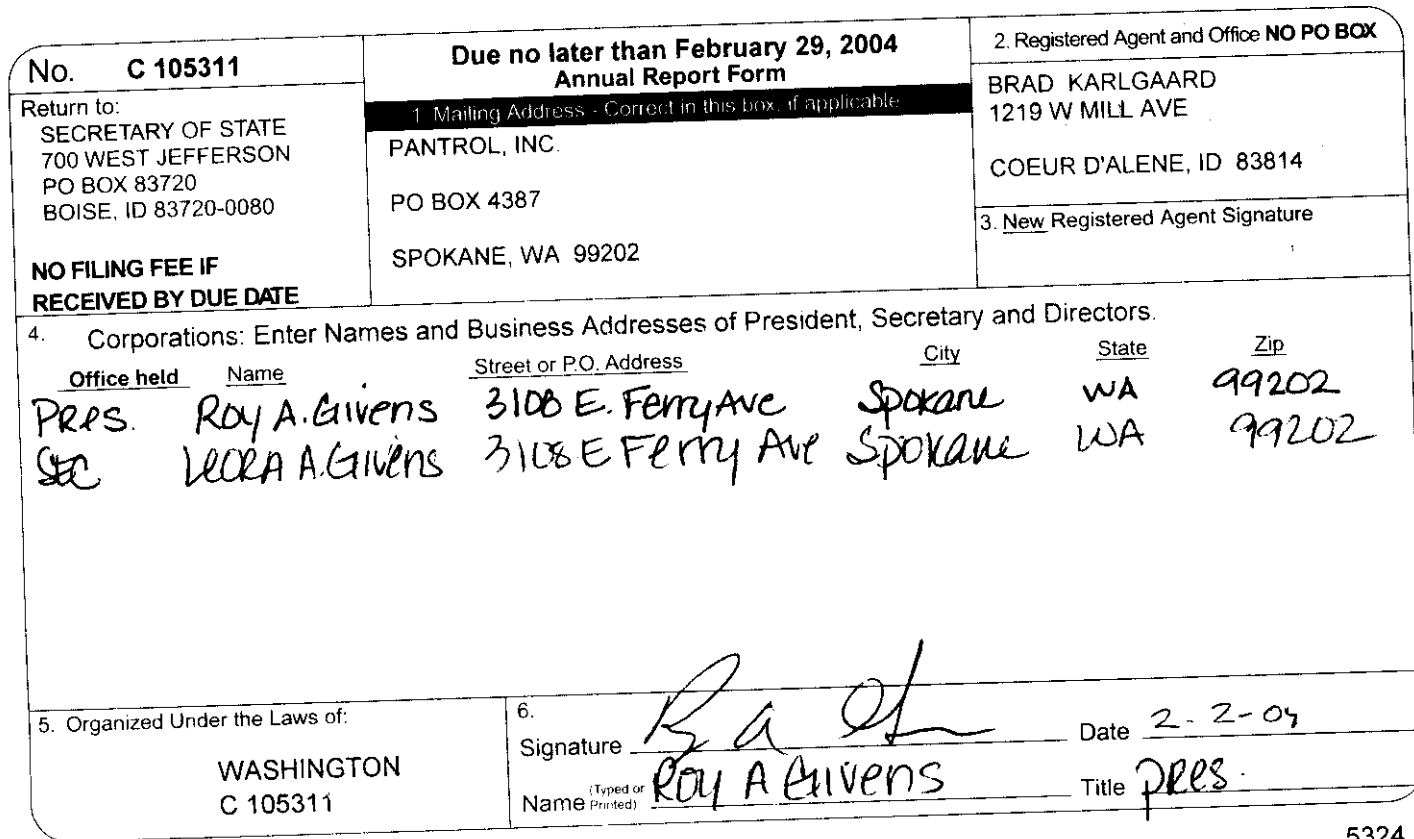 No. C 105311
Return to:
SECRETARY OF STATE
700 WEST JEFFERSON
PO BOX 83720
BOISE, ID 83720-0080
NO FILING FEE IF
RECEIVED BY DUE DATE
Due no later than February 29, 2004
Annual Report Form
1. Mailing Address - Correct in this box, if applicable
PANTROL, INC.
PO BOX 4387
SPOKANE, WA 99202
2. Registered Agent and Office NO PO BOX
BRAD KARLGAARD
1219 W MILL AVE
COEUR D'ALENE, ID 83814
3. New Registered Agent Signature
4. Corporations: Enter Names and Business Addresses of President, Secretary and Directors.
Office held Name Street or P.O. Address City State Zip
PRES. ROY A. Givens 3108 E. Ferry Ave Spokane WA 99202
SEC LEORA A. Givens 3108 E Ferry Ave Spokane WA 99202
5. Organized Under the Laws of:
WASHINGTON
C 105311
6.
Signature Date 2-2-04
Name (Typed or Printed) ROY A Givens Title PRES.
5324